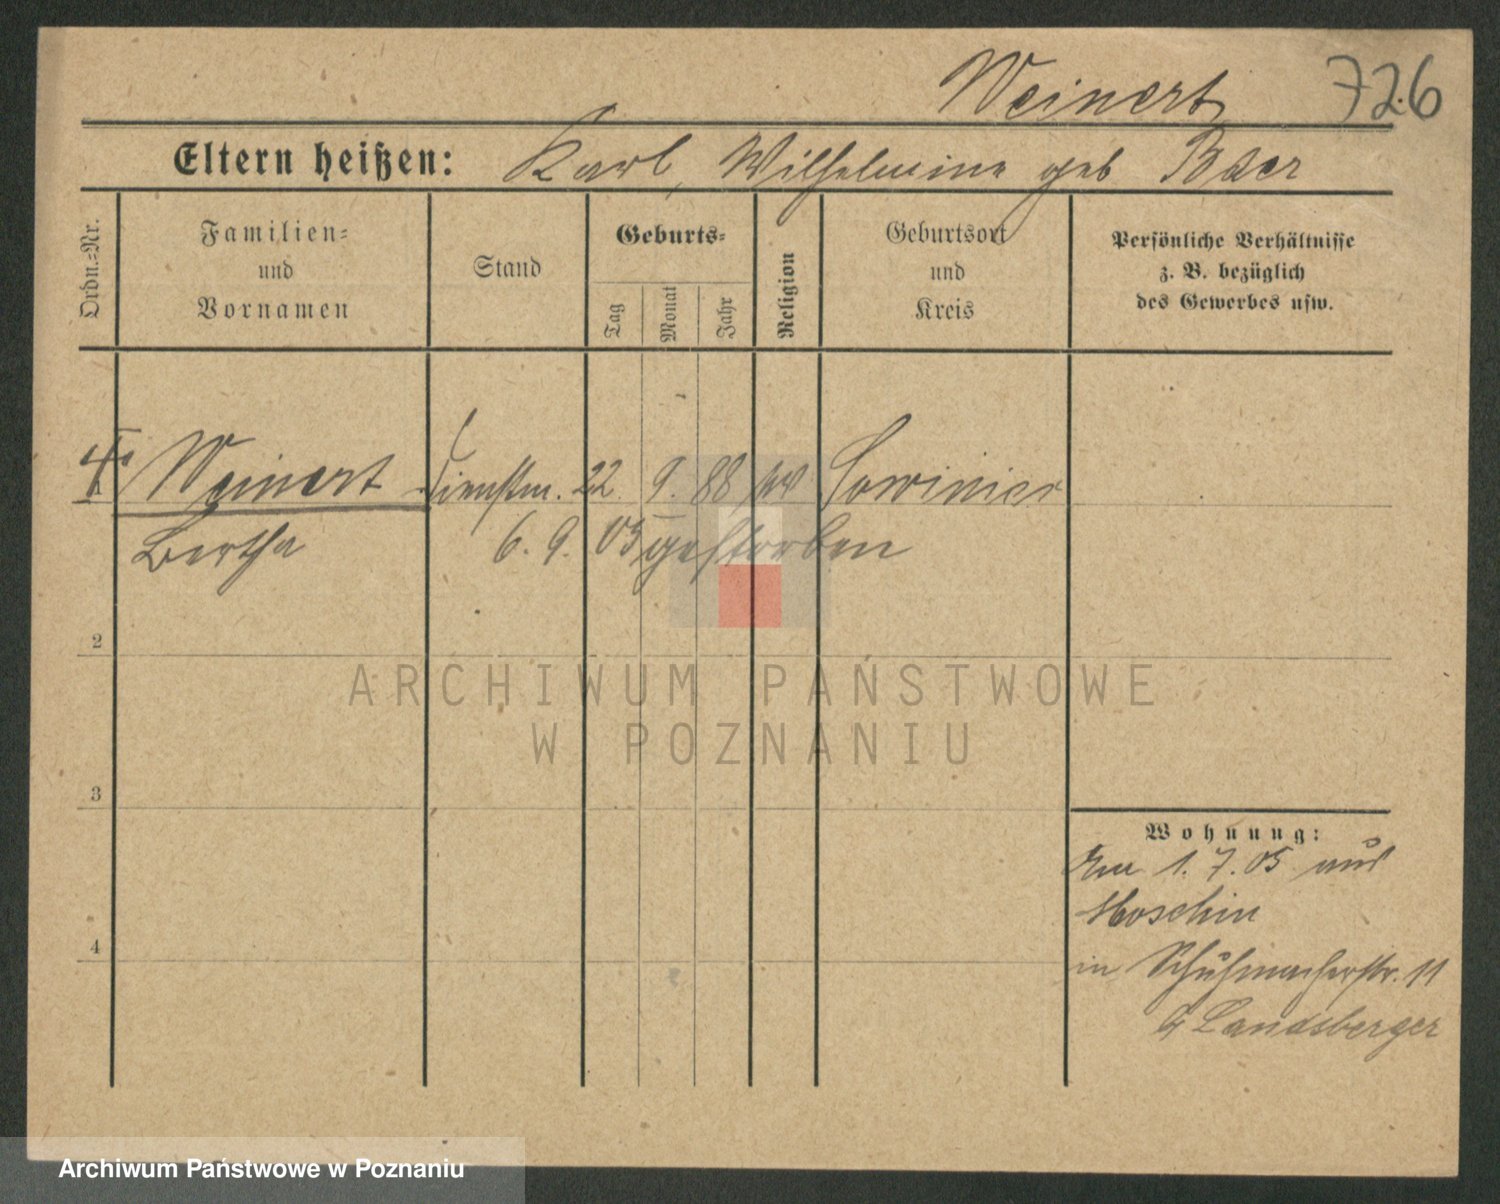 Weinert 726
Eltern heißen: Karl, Wilhelmine geb Baer
Ordn.-Nr.
Familien-
und
Vornamen
Stand
Geburts-
Tag
Monat
Jahr
Religion
Geburtsort
und
Kreis
Persönliche Verhältnisse
z. B. bezüglich
des Gewerbes usw.
Weinert Dienstm. 22. 9. 88 ev Sowinier
Bertha 6. 9. 05 gestorben
2
3
4
Wohnung:
Am 1. 7. 05 aus
Moschin
in Schuhmacherstr. 11
b Landsberger
ARCHIWUM PAŃSTWOWE
W POZNANIU
Archiwum Państwowe w Poznaniu